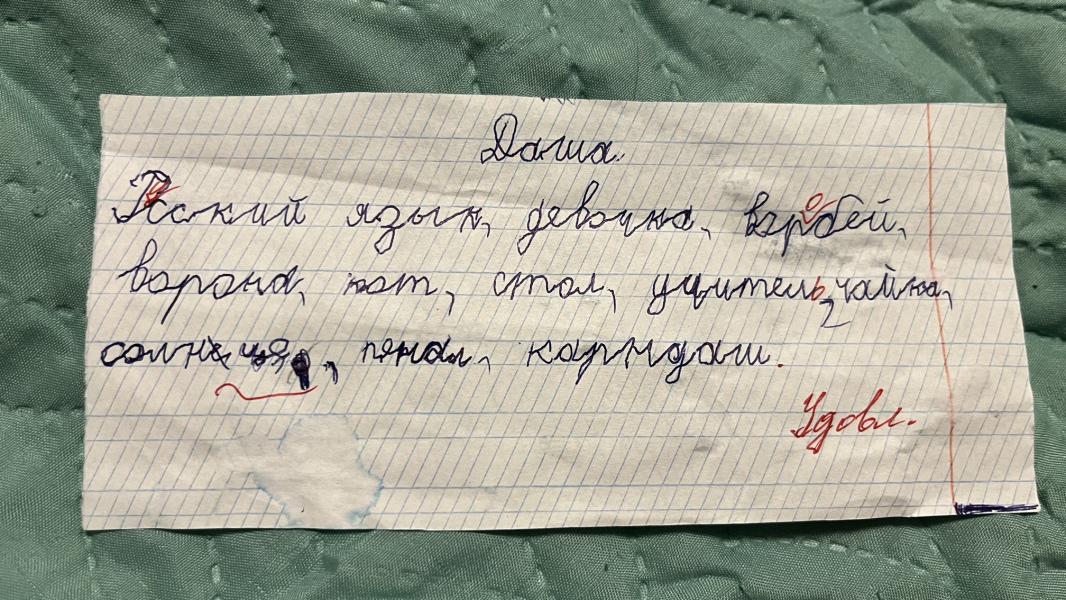 Даша.
Руский язык, девочка, воробей,
ворона, кот, стол, учитель, чайка,
пенал, карндаш.
Удовл.